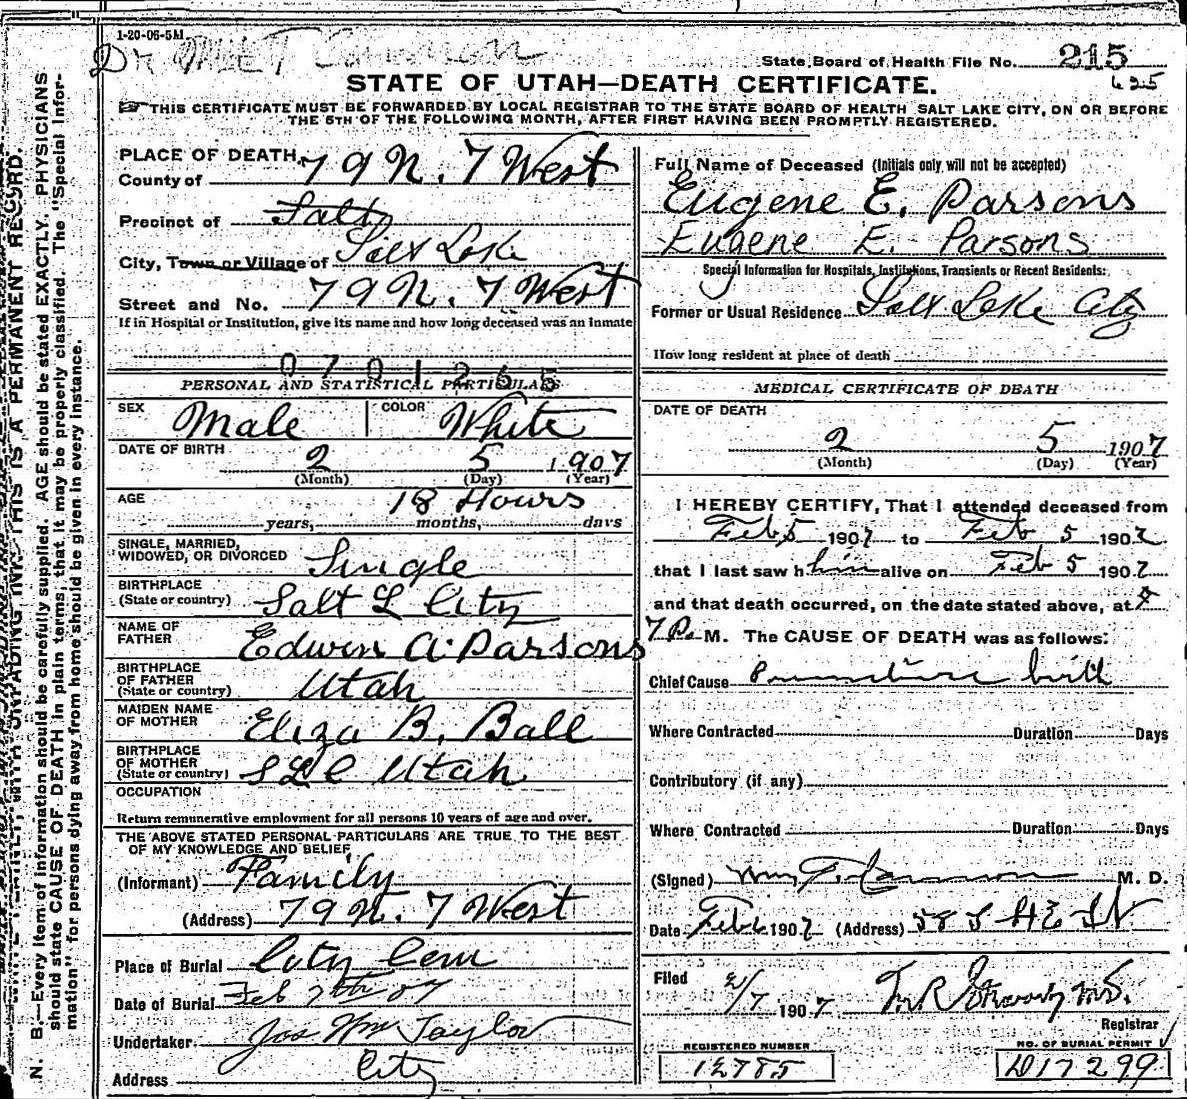 1-20-06-5M
Dr Wm T Cannon
State Board of Health File No. 215
625
STATE OF UTAH—DEATH CERTIFICATE.
THIS CERTIFICATE MUST BE FORWARDED BY LOCAL REGISTRAR TO THE STATE BOARD OF HEALTH SALT LAKE CITY, ON OR BEFORE
THE 5TH OF THE FOLLOWING MONTH, AFTER FIRST HAVING BEEN PROMPTLY REGISTERED.
PLACE OF DEATH
County of 79 N. 7 West
Precinct of Salt
City, Town or Village of Salt Lake
Street and No. 79 N. 7 West
If in Hospital or Institution, give its name and how long deceased was an inmate
0701265
PERSONAL AND STATISTICAL PARTICULARS
SEX Male COLOR White
DATE OF BIRTH
2 5 1907
(Month) (Day) (Year)
AGE 18 Hours
years, months, days
SINGLE, MARRIED,
WIDOWED, OR DIVORCED Single
BIRTHPLACE
(State or country) Salt L City
NAME OF
FATHER Edwin A. Parsons
BIRTHPLACE
OF FATHER
(State or country) Utah
MAIDEN NAME
OF MOTHER Eliza B. Ball
BIRTHPLACE
OF MOTHER
(State or country) SLC Utah
OCCUPATION
Return remunerative employment for all persons 10 years of age and over.
THE ABOVE STATED PERSONAL PARTICULARS ARE TRUE TO THE BEST
OF MY KNOWLEDGE AND BELIEF
(Informant) Family
(Address) 79 N. 7 West
Place of Burial City Cem
Date of Burial Feb 7th 07
Undertaker Jos Wm Taylor
Address City
Full Name of Deceased (Initials only will not be accepted)
Eugene E. Parsons
Eugene E. Parsons
Special Information for Hospitals, Institutions, Transients or Recent Residents:
Former or Usual Residence Salt Lake City
How long resident at place of death
MEDICAL CERTIFICATE OF DEATH
DATE OF DEATH
2 5 1907
(Month) (Day) (Year)
I HEREBY CERTIFY, That I attended deceased from
Feb 5 1907 to Feb 5 1907
that I last saw him alive on Feb 5 1907
and that death occurred, on the date stated above, at
7 P. M. The CAUSE OF DEATH was as follows:
Chief Cause Premature birth
Where Contracted Duration Days
Contributory (if any)
Where Contracted Duration Days
(Signed) Wm T. Cannon M. D.
Date Feb 6 1907 (Address)
Filed 2/7 1907
Registrar
REGISTERED NUMBER
12785
NO. OF BURIAL PERMIT
D17299
N. B.—Every item of information should be carefully supplied. AGE should be stated EXACTLY. PHYSICIANS
should state CAUSE OF DEATH in plain terms, that it may be properly classified. The "Special Infor-
mation" for persons dying away from home should be given in every instance.
THIS IS A PERMANENT RECORD.